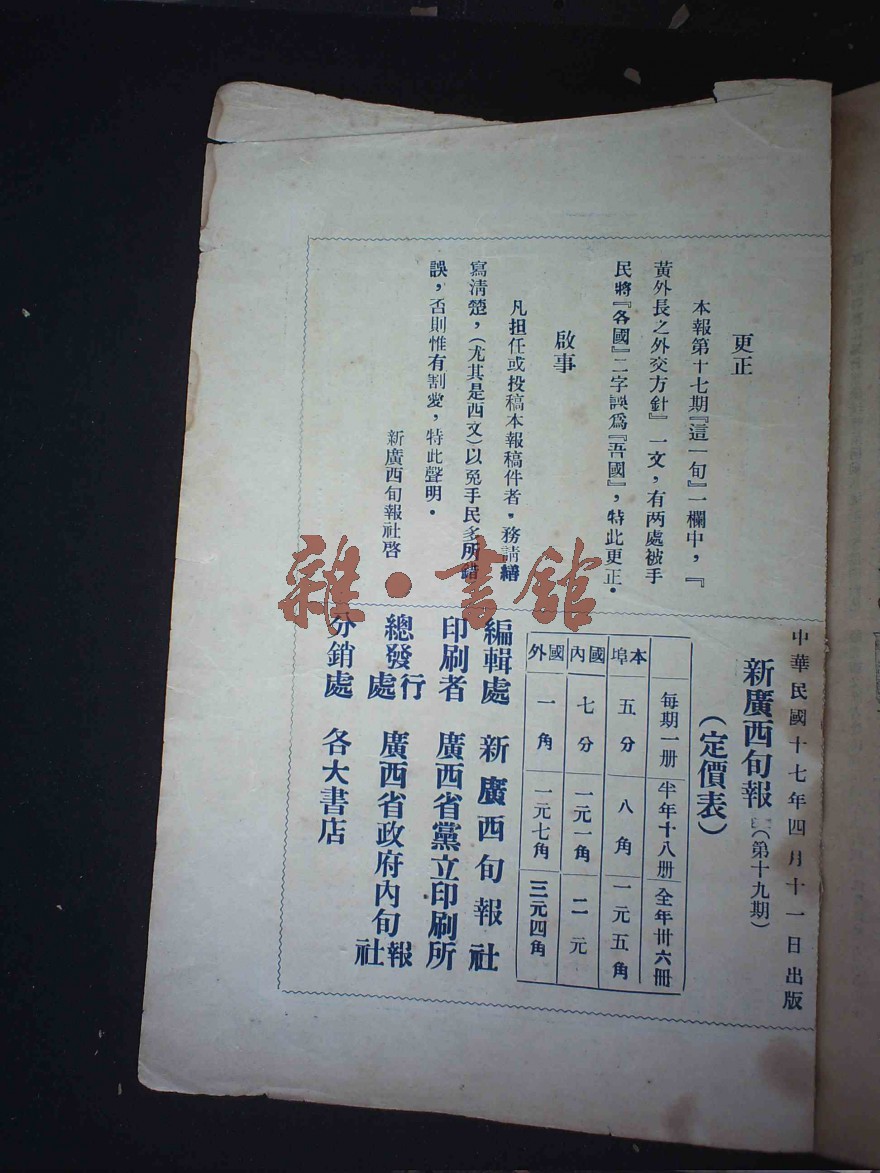 更正
本報第十七期『這一旬』一欄中，『
黃外長之外交方針』一文，有两處被手
民將『各國』二字誤爲『吾國』，特此更正。
啟事
凡担任或投稿本報稿件者，務請繕
寫清楚，(尤其是西文)以免手民多所錯
誤，否則惟有割愛，特此聲明。
新廣西旬報社啓
中華民國十七年四月十一日出版
新廣西旬報(第十九期)
(定價表)
每期一册 半年十八册 全年卅六册
本埠 五分 八角 一元五角
國內 七分 一元一角 二元
國外 一角 一元七角 三元四角
編輯處 新廣西旬報社
印刷者 廣西省黨立印刷所
總發行處 廣西省政府內旬報社
分銷處 各大書店
雜·書館